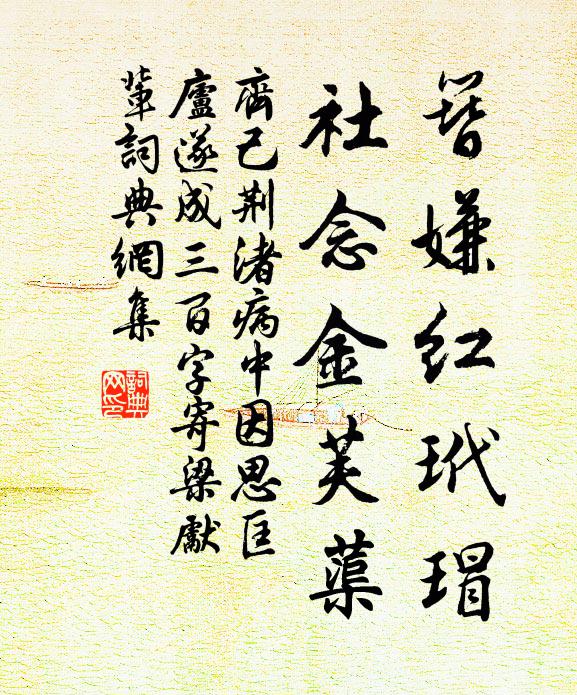 簪嫌红玳瑁
社念金芙蕖
齊己荆渚病中因思匡
廬遂成三百字寄梁獻
輩詞典網集
詞典
网印